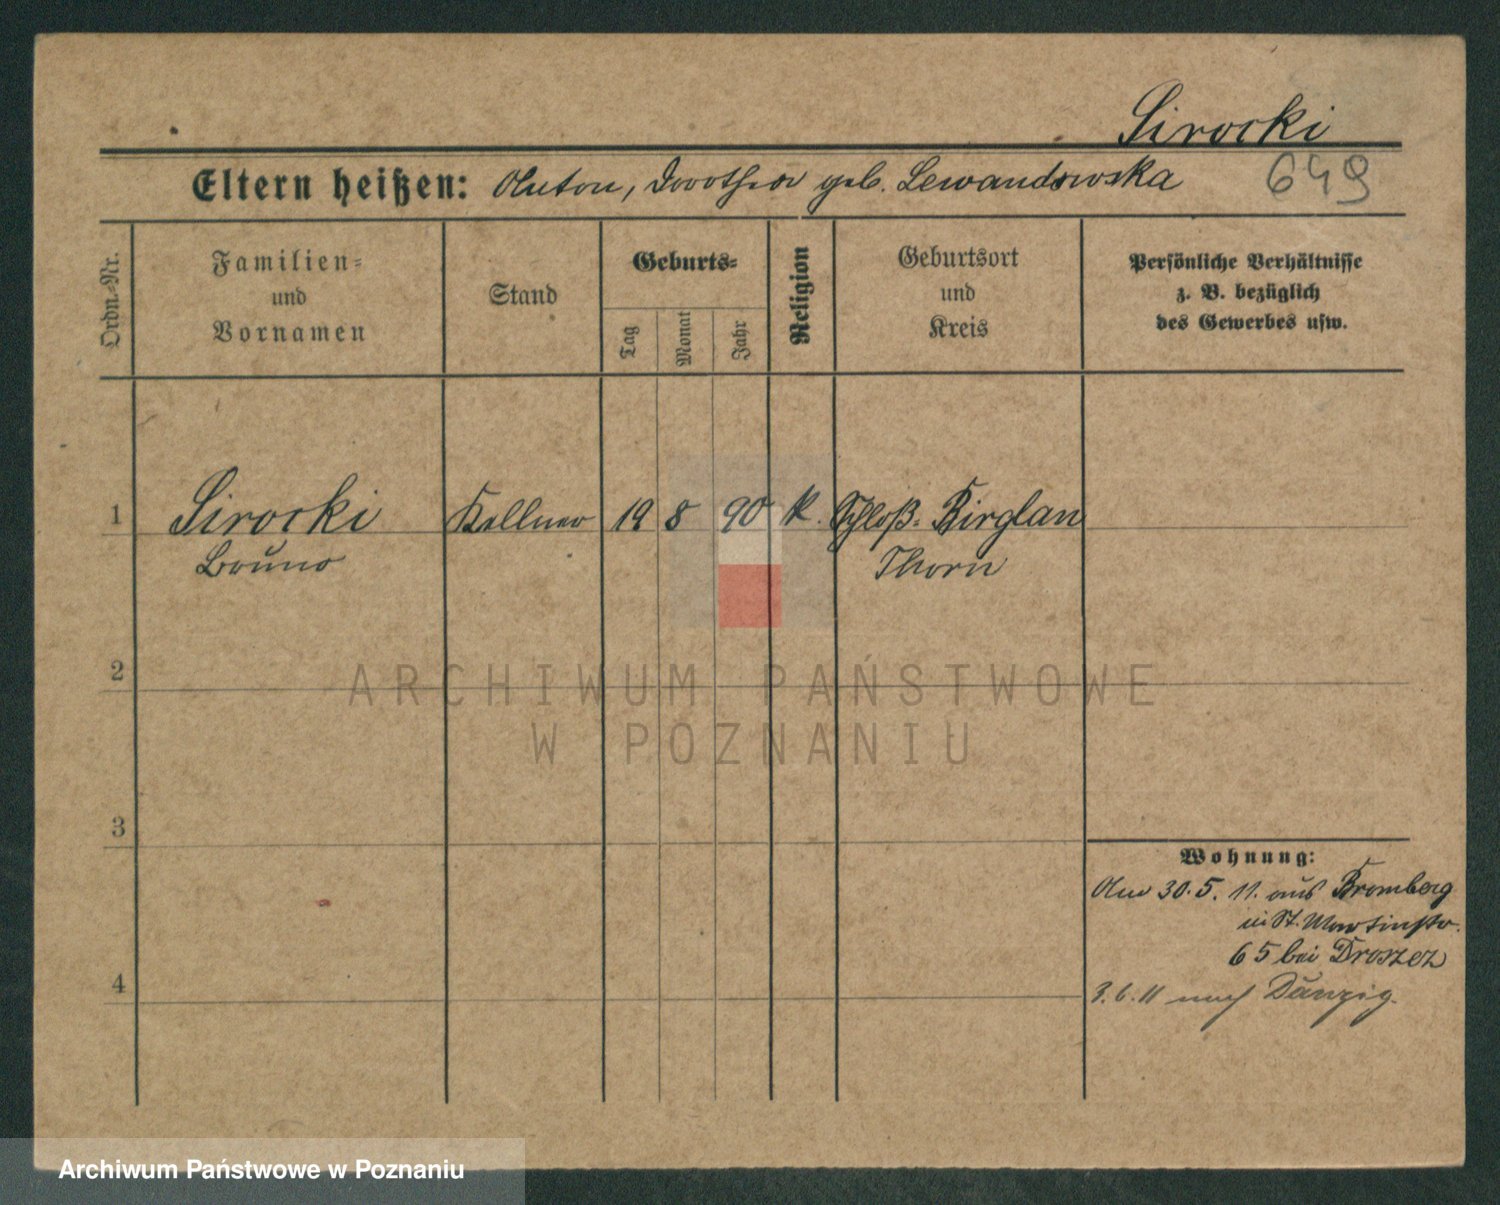 Sirocki
Eltern heißen: Anton, Dorothea geb. Lewandowska 649
Ordn.-Nr.
Familien-
und
Vornamen
Stand
Geburts-
Tag
Monat
Jahr
Religion
Geburtsort
und
Kreis
Persönliche Verhältnisse
z. B. bezüglich
des Gewerbes usw.
1 Sirocki Kellner 19 8 90 k. Schloß-Birglau
Bruno Thorn
2
3
4
ARCHIWUM PAŃSTWOWE
W POZNANIU
Wohnung:
Am 30.5.11. aus Bromberg
in St. Martinstr.
65 bei Droszez
3.6.11 nach Danzig.
Archiwum Państwowe w Poznaniu